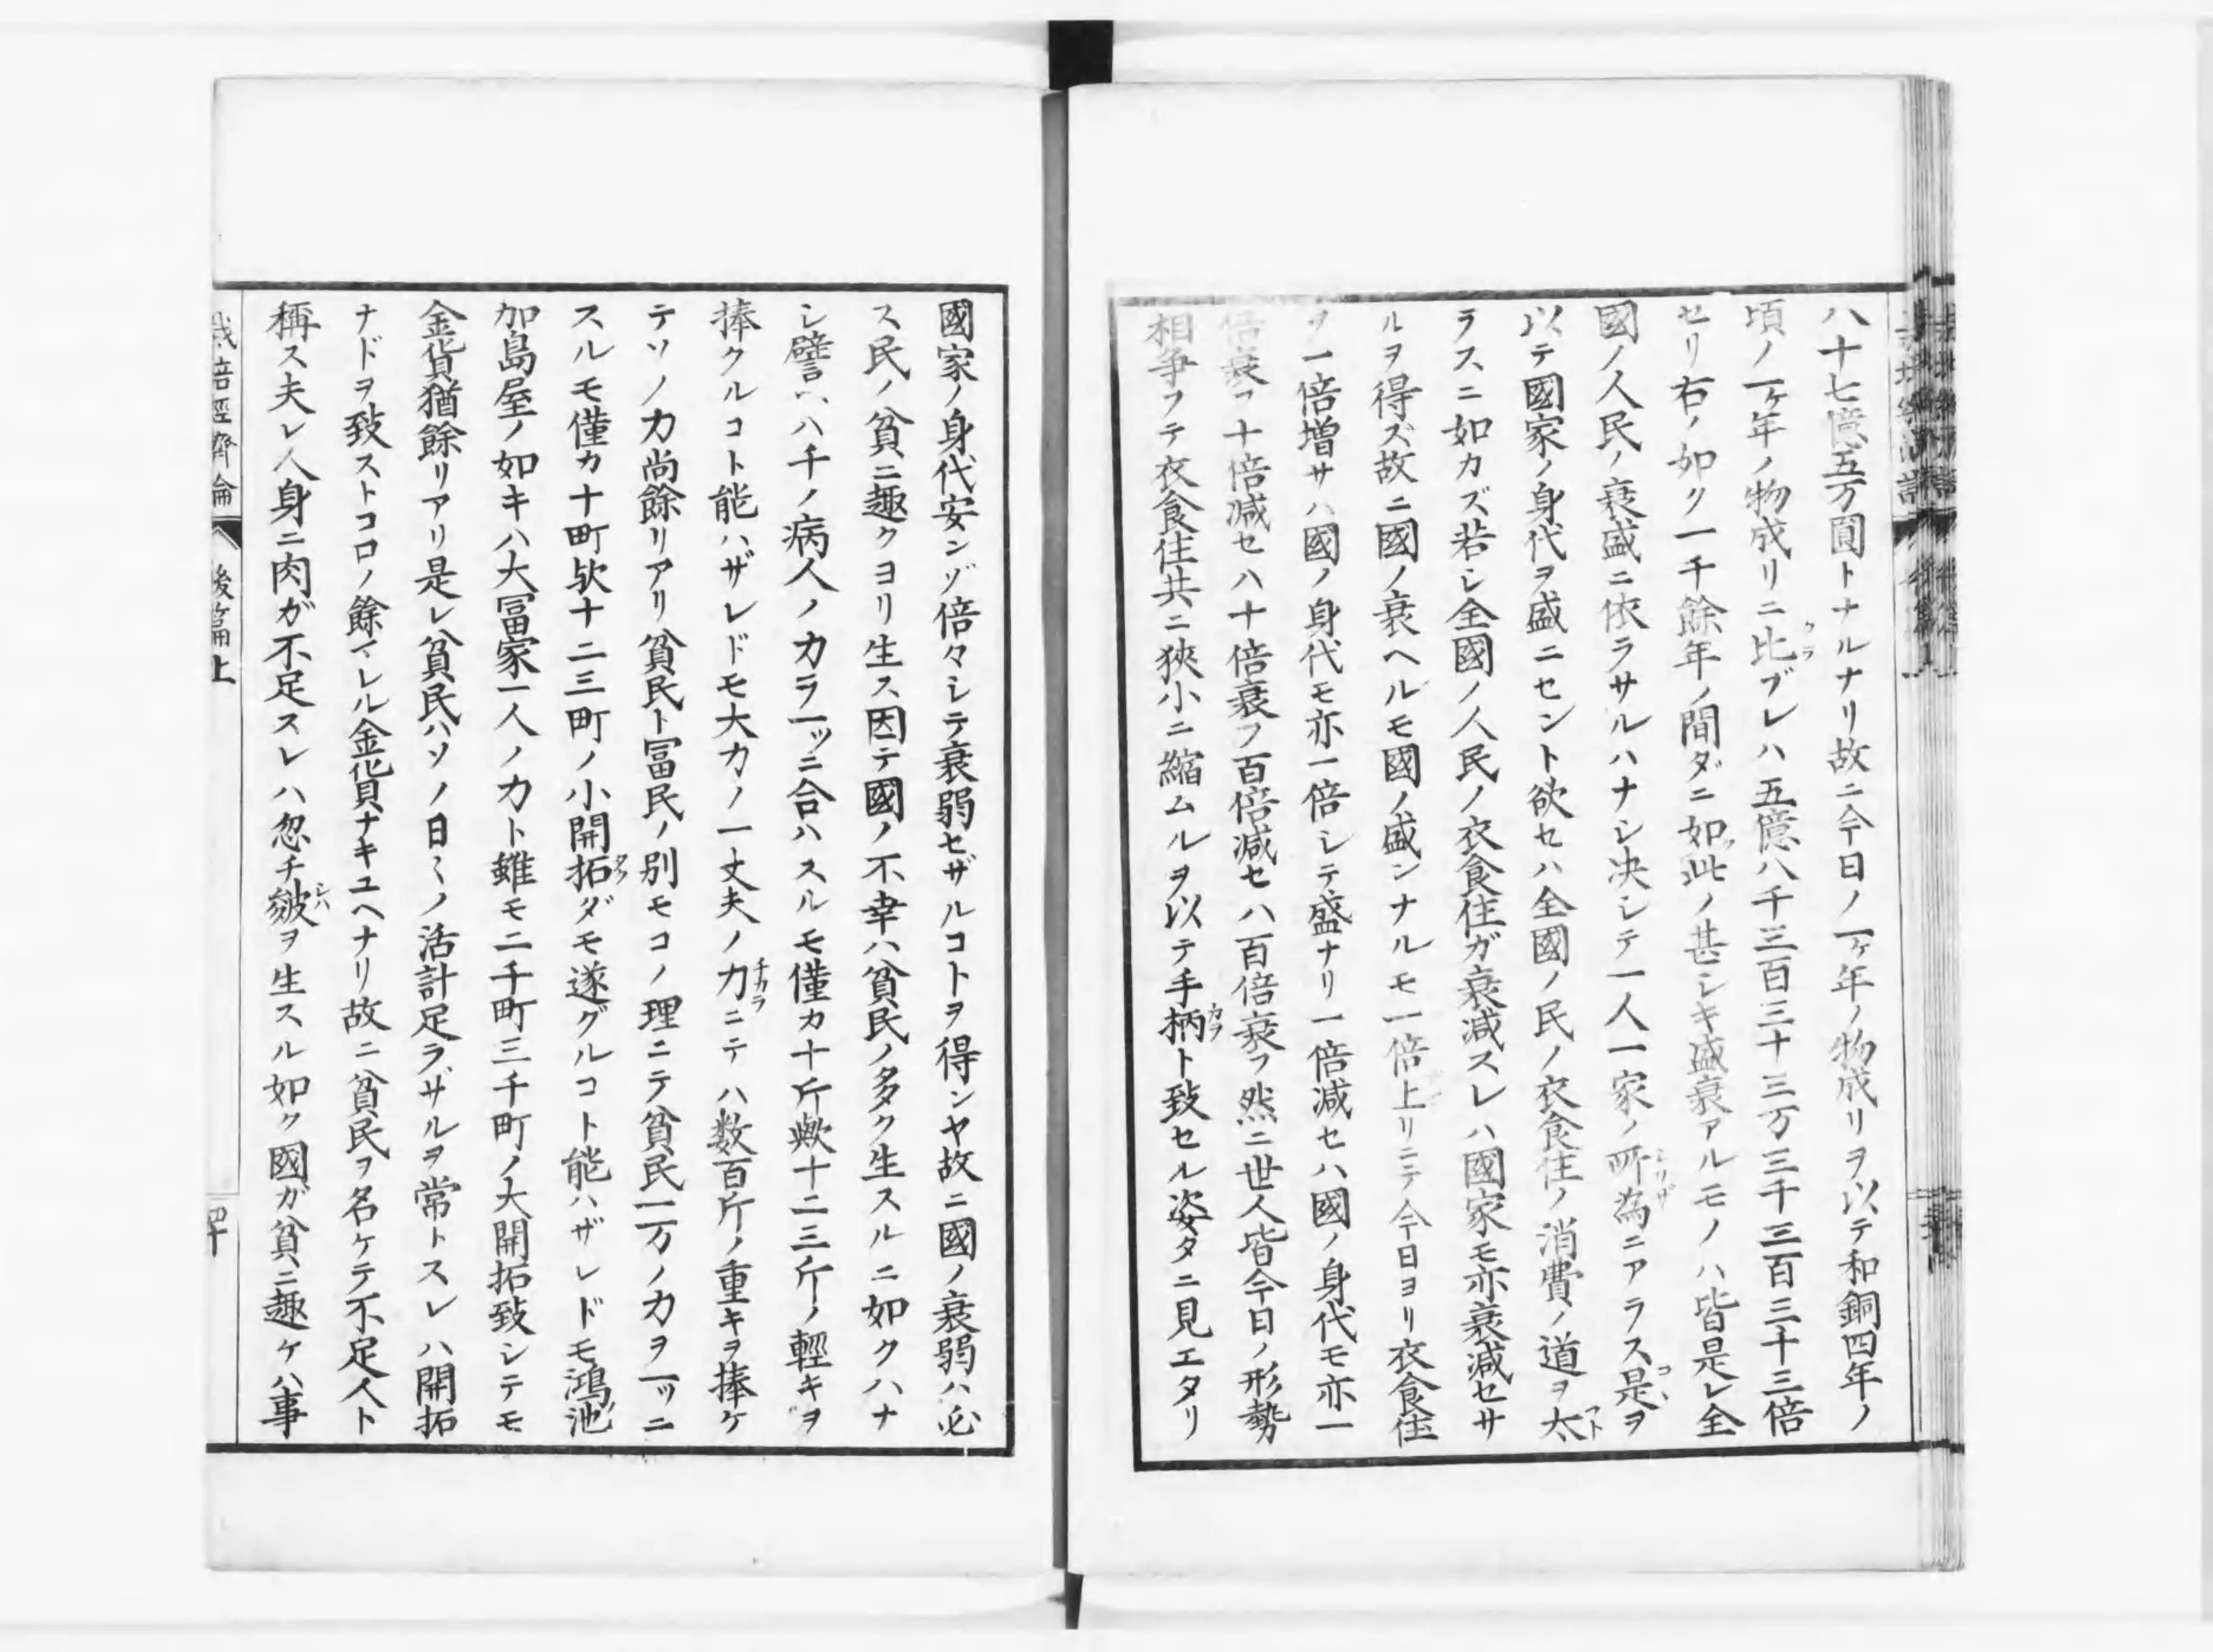 八十七億五万圓トナルナリ故ニ今日ノ一ケ年ノ物成リヲ以テ和銅四年ノ
頃ノ一ケ年ノ物成リニ比ブレハ五億八千三百三十三万三千三百三十三倍
セリ右ノ如ク一千餘年ノ間ダニ如此ノ甚シキ盛衰アルモノハ皆是レ全
國ノ人民ノ衰盛ニ依ラサルハナシ决シテ一人一家ノ所為ニアラス是ヲ
以テ國家ノ身代ヲ盛ニセント欲セハ全國ノ民ノ衣食住ノ消費ノ道ヲ太
ラスニ如カズ若シ全國ノ人民ノ衣食住ガ衰減スレハ國家モ亦衰減セサ
ルヲ得ズ故ニ國ノ衰ヘルモ國ノ盛ンナルモ一倍上リニテ今日ヨリ衣食住
ヲ一倍増サハ國ノ身代モ亦一倍シテ盛ナリ一倍減セハ國ノ身代モ亦一
倍衰フ十倍減セハ十倍衰フ百倍減セハ百倍衰フ然ニ世人皆今日ノ形勢
相争フテ衣食住共ニ狹小ニ縮ムルヲ以テ手柄ト致セル姿タニ見エタリ
國家ノ身代安ンゾ倍々シテ衰弱セザルコトヲ得ンヤ故ニ國ノ衰弱ハ必
ス民ノ貧ニ趣クヨリ生ス因テ國ノ不幸ハ貧民ノ多ク生スルニ如クハナ
シ譬ハ八千ノ病人ノカラ一ッニ合ハスルモ僅カ十斤歟十二三斤ノ輕キヲ
捧クルコト能ハザレドモ大力ノ一丈夫ノ力ニテハ数百斤ノ重キヲ捧ケ
テソノ力尚餘リアリ貧民ト冨民ノ別モコノ理ニテ貧民一万ノ力ヲ一ッニ
スルモ僅カ十町欤十二三町ノ小開拓ダモ遂グルコト能ハザレドモ鴻池
加島屋ノ如キハ大冨家一人ノ力ト雖モ二千町三千町ノ大開拓致シテモ
金貨猶餘リアリ是レ貧民ハソノ日〻ノ活計足ラザルヲ常トスレハ開拓
ナドヲ致ストコロノ餘マレル金貨ナキユヘナリ故ニ貧民ヲ名ケテ不足人ト
稱ス夫レ人身ニ肉ガ不足スレハ忽チ皴ヲ生スル如ク國ガ貧ニ趣ケハ事
栽培經濟論 後篇上